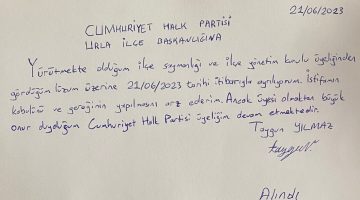 21/06/2023
CUMHURİYET HALK PARTİSİ
URLA İLÇE BAŞKANLIĞINA
Yürütmekte olduğum ilçe saymanlığı ve ilçe yönetim kurulu üyeliğinden
gördüğüm lüzum üzerine 21/06/2023 tarihi itibarıyla ayrılıyorum. İstifamın
kabulünü ve gereğinin yapılmasını arz ederim. Ancak üyesi olmaktan büyük
onur duyduğum Cumhuriyet Halk Partisi üyeliğim devam etmektedir.
Taygun YILMAZ
Alındı